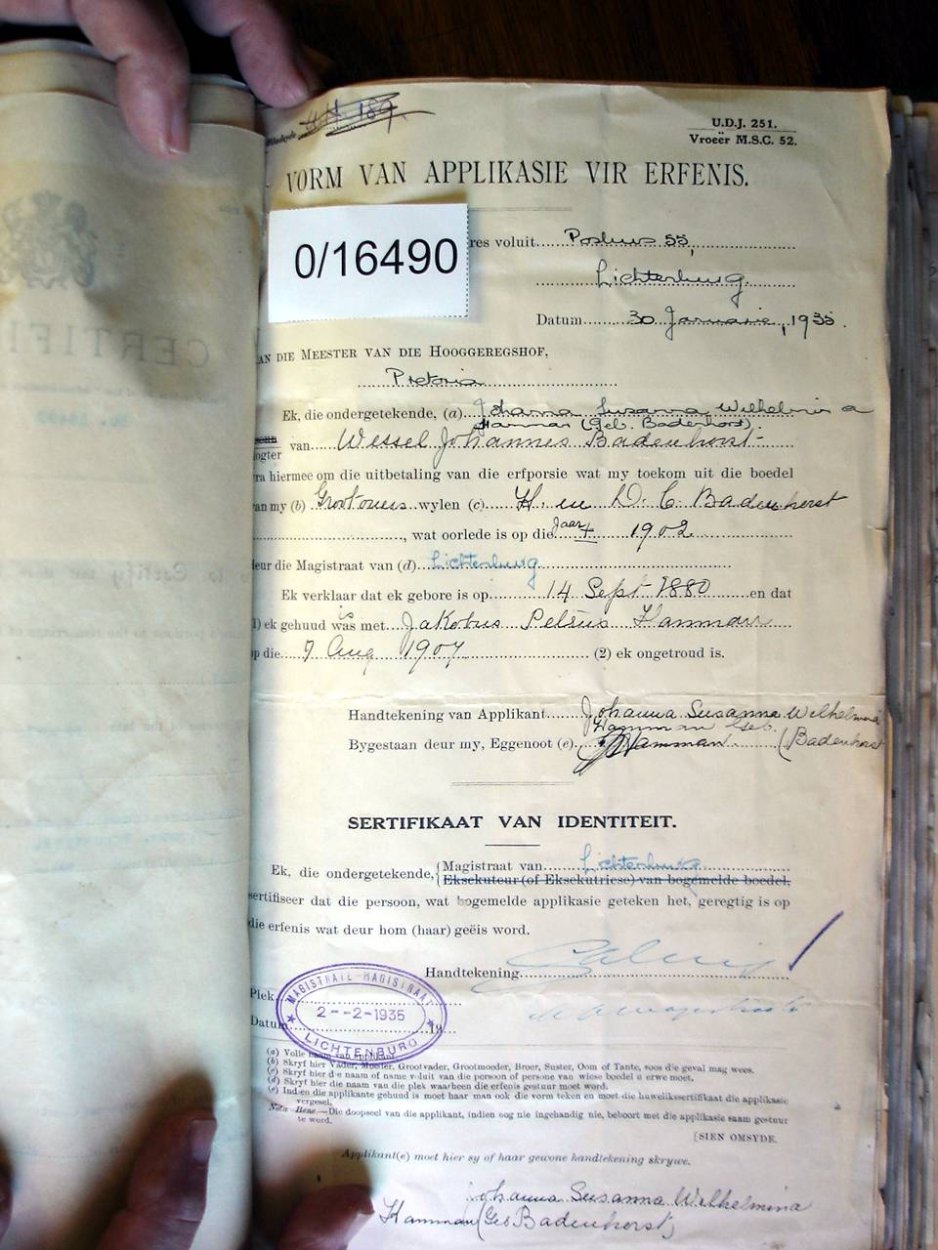 U.D.J. 251.
Vroeër M.S.C. 52.
VORM VAN APPLIKASIE VIR ERFENIS.
0/16490
res voluit Posbus 55,
Lichtenburg
Datum 30 Januarie, 1935.
AN DIE MEESTER VAN DIE HOOGGEREGSHOF,
Pretoria
Ek, die ondergetekende, (a) Johanna Susanna Wilhelmina
Hamman (Geb. Badenhorst).
ogter van Wessel Johannes Badenhorst
ra hiermee om die uitbetaling van die erfporsie wat my toekom uit die boedel
an my (b) Grootouers wylen (c) H. en D. C. Badenhorst
, wat oorlede is op die Jaar 1902
eur die Magistraat van (d) Lichtenburg
Ek verklaar dat ek gebore is op 14 Sept 1880 en dat
1) ek gehuud was is met Jakobus Petrus Hamman
op die 7 Aug 1907 (2) ek ongetroud is.
Handtekening van Applikant Johanna Susanna Wilhelmina
Hamman Geb.
Bygestaan deur my, Eggenoot (e) Hamman (Badenhorst
SERTIFIKAAT VAN IDENTITEIT.
Ek, die ondergetekende, Magistraat van Lichtenburg
Eksekuteur (of Eksekutriese) van bogemelde boedel,
sertifiseer dat die persoon, wat bogemelde applikasie geteken het, geregtig is op
die erfenis wat deur hom (haar) geëis word.
Handtekening
Plek
MAGISTRATE-MAGISTRAAT
2--2-1935
LICHTENBURG
Datum 19
(a) Volle naam van applikant.
(b) Skryf hier Vader, Moeder, Grootvader, Grootmoeder, Broer, Suster, Oom of Tante, soos die geval mag wees.
(c) Skryf hier die naam of name voluit van die persoon of persone van wiese boedel u erwe moet.
(d) Skryf hier die naam van die plek waarheen die erfenis gestuur moet word.
(e) Indien die applikante gehuud is moet haar man ook die vorm teken en moet die huweliksertifikaat die applikasie
vergesel.
Nota Bene.—Die doopseel van die applikant, indien nog nie ingehandig nie, behoort met die applikasie saam gestuur
te word.
[SIEN OMSYDE.
Applikant(e) moet hier sy of haar gewone handtekening skrywe.
Johanna Susanna Wilhelmina
Hamman (Geb Badenhorst)